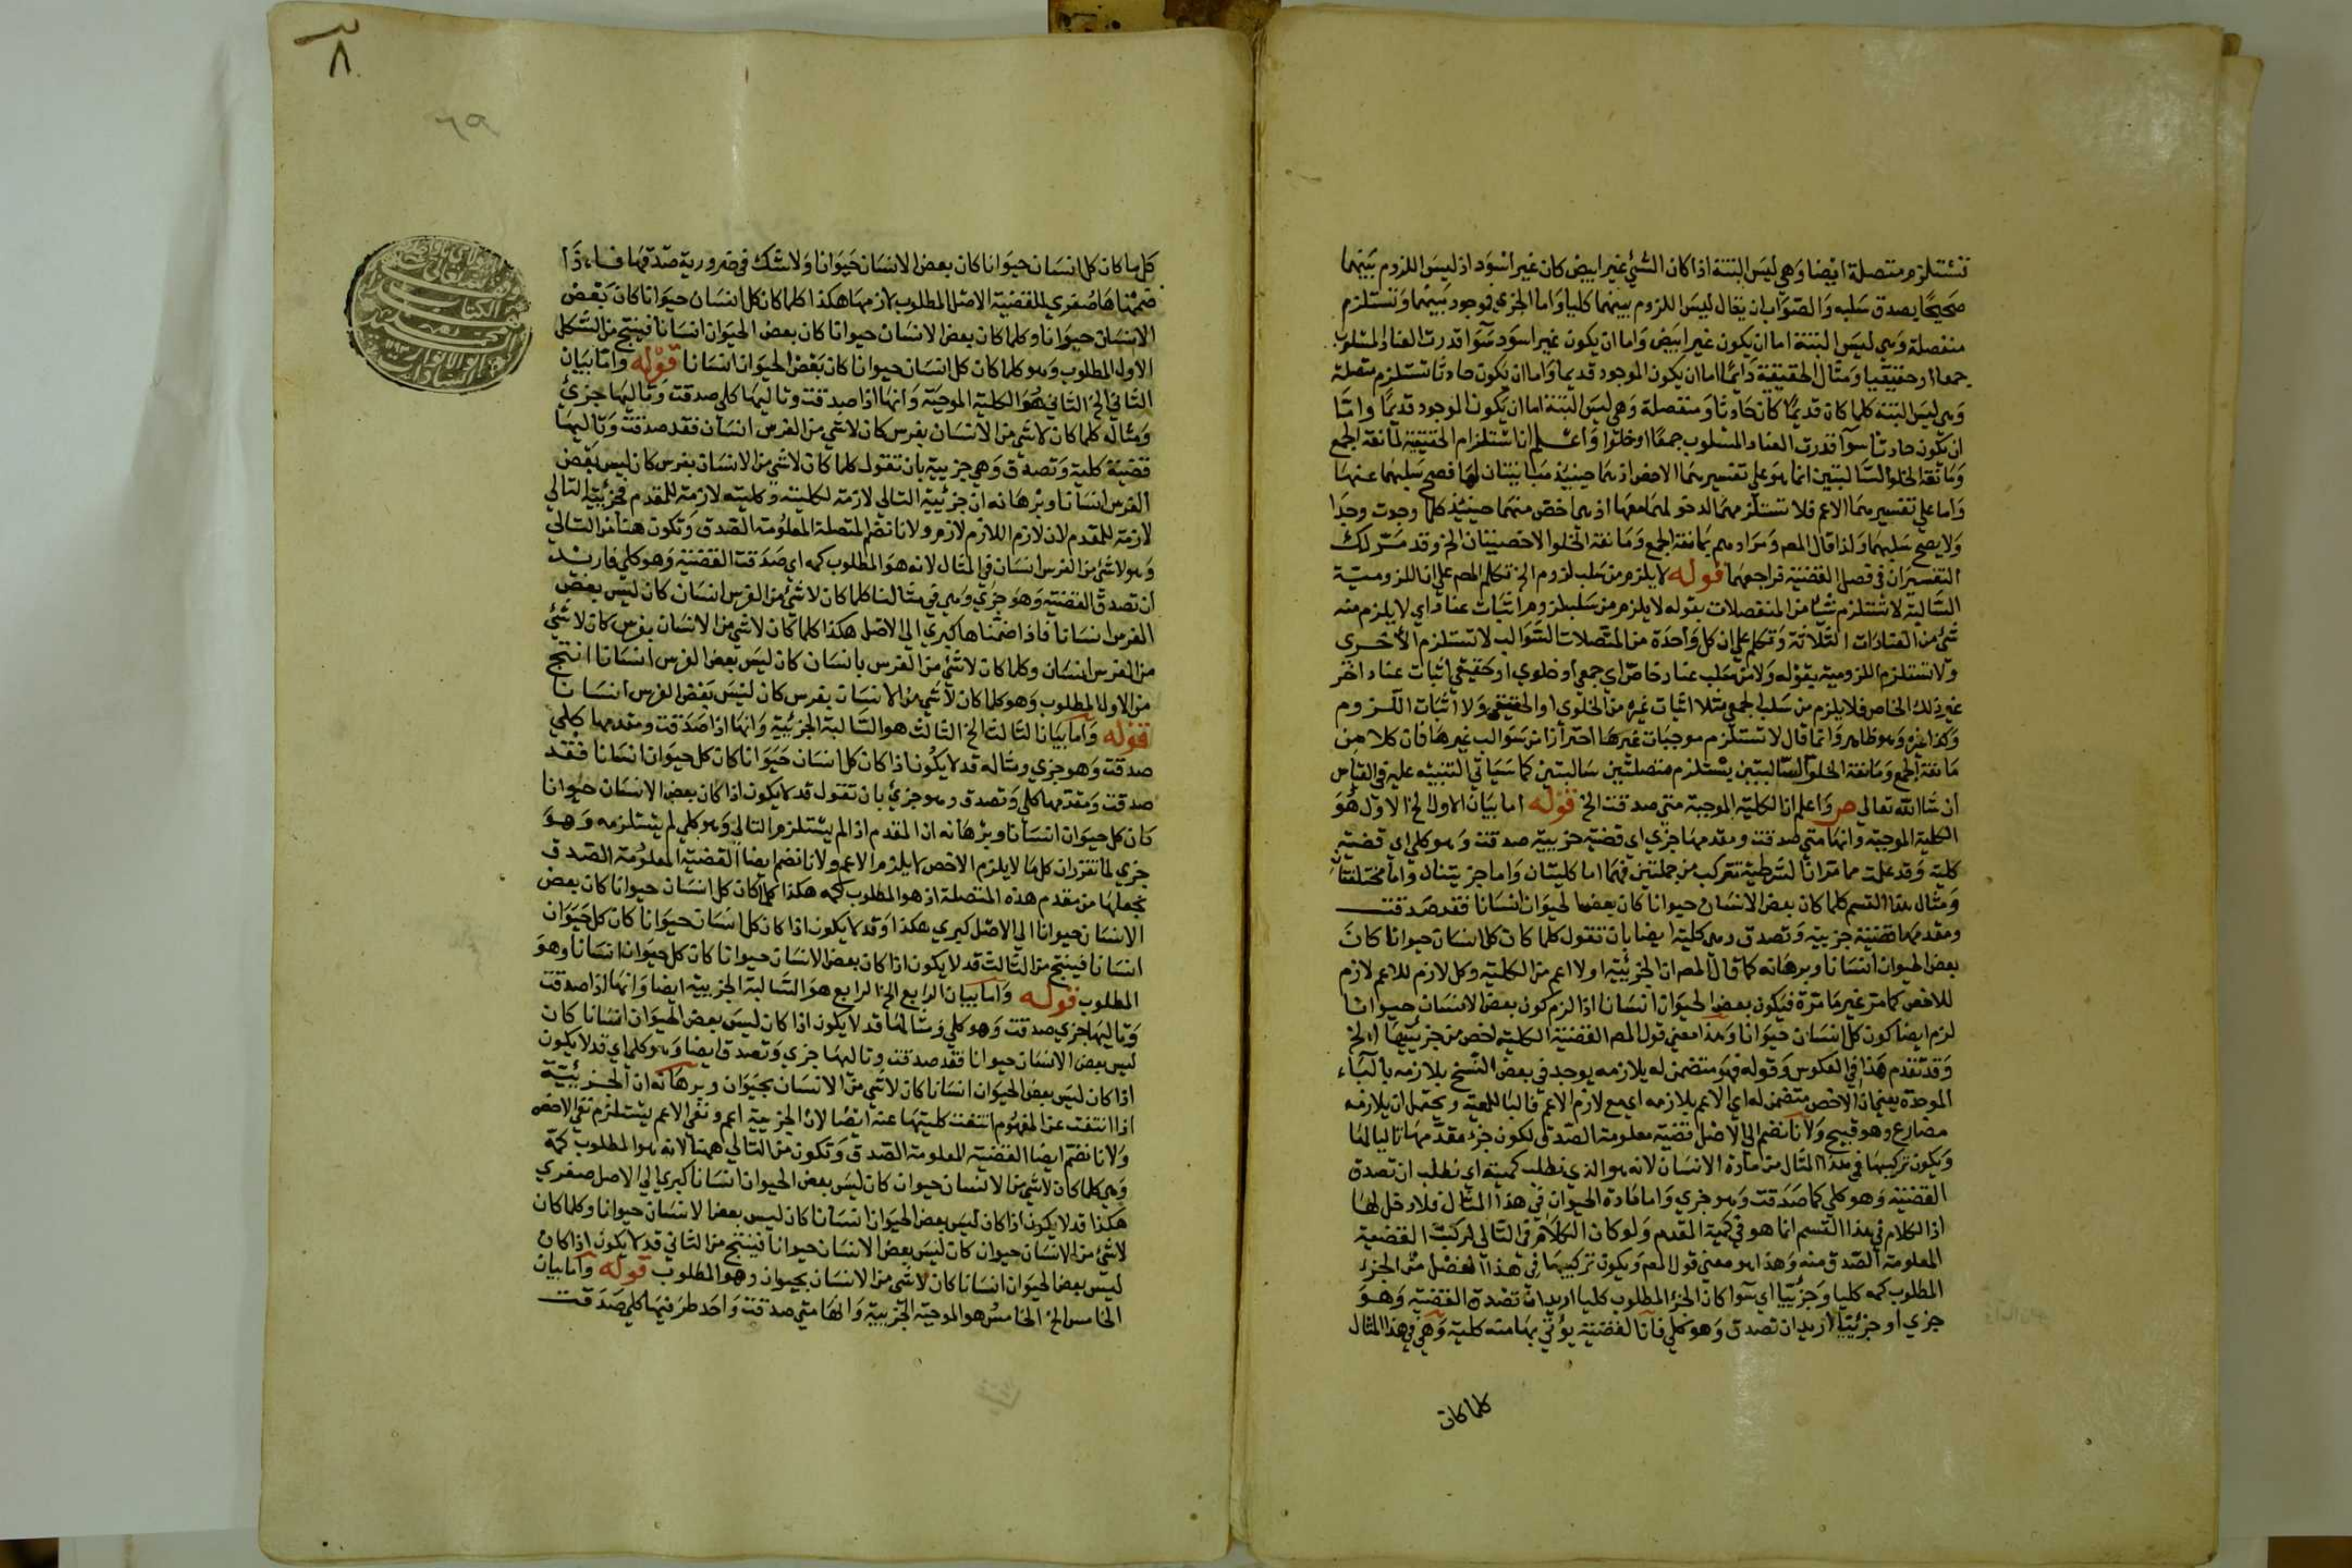 تستلزم متصلة ايضا وهي ليس البتة اذا كان الشئ غير ابيض كان غير اسود اذ ليس اللزوم بينهما
صحيحا يصدق سلبه والصواب ان يقال ليس اللزوم بينهما كليا واما الجزي فوجود بينهما وتستلزم
منفصلة وهي ليس البتة اما ان يكون غير ابيض واما ان يكون غير اسود سوا قدرت العناد المسلوب
جمعا او حقيقيا ومثال الحقيقية دايما اما ان يكون الموجود قديما واما ان يكون حادثا تستلزم متصلة
وهي ليس البتة كلما كان قديما كان حادثا ومنفصلة وهي ليس البتة اما ان يكون الموجود قديما واما
ان يكون حادثا سوآ قدرت العناد المسلوب جمعا او خلوا واعلم ان استلزام الحقيقية لمانعة الجمع
ومانعة الخلو السالبتين انما هو علي تفسيرهما الاخص اذ هما حينيذ مباينتان لها فصح سلبهما عنها
واما علي تفسيرهما الاعم فلا تستلزمهما لدخولهما معها اذ هي اخص منهما حينيذ كلما وجدت وجدا
ولا يصح سلبهما ولذا قال المصـ ومرادهم بمانعة الجمع ومانعة الخلو الاخصيتان الخ وقد مر لك
التفسيران في فصل القضية فراجعهما قوله لا يلزم من سلب لزوم الخ تكلم المصـ علي ان اللزومية
السالبة لا تستلزم شيا من المنفصلات بقوله لا يلزم من سلب لزوم اثبات عناد اي لا يلزم منه
شئ من العنادات الثلاثة وتكلم علي ان كل واحدة من المتصلات السوالب لا تستلزم الاخرى
ولا تستلزم اللزومية بقوله ولا من سلب عناد خاص اي جمعي او خلوي او حقيقي اثبات عناد اخر
غير ذلك الخاص فلا يلزم من سلب الجمعي مثلا اثبات غيره من الخلوي او الحقيقي ولا اثبات اللزوم
وكذا غيره وهو ظاهر وانما قال لا تستلزم موجبات غيرها احترازا من سوالب غيرها فان كلا من
مانعة الجمع ومانعة الخلو السالبتين يستلزم متصلتين سالبتين كما سياتي التنبيه عليه في القياس
ان شا الله تعالي ص واعلم ان الكلية الموجبة متي صدقت الخ قوله اما بيان الاول الخ الاول هو
الكلية الموجبة وانها متي صدقت ومقدمها جزي اي قضية جزيية صدقت وهو كلي اي قضية
كلية وقد علمت مما مر ان الشرطية تتركب من جملتين فهما اما كليتان واما جزييتان واما مختلفتان
ومثال هذا القسم كلما كان بعض الانسان حيوانا كان بعض الحيوان انسانا فقد صدقت
ومقدمها قضية جزيية وتصدق وهي كلية ايضا بان تقول كلما كان كل انسان حيوانا كان
بعض الحيوان انسانا وبرهانه كما قال المصـ ان الجزئية اولا اعم من الكلية وكل لازم للاعم لازم
للاخص كما مر غير ما مرة فيكون بعض الحيوان انسانا اذا لزم كون بعض الانسان حيوانا
لزم ايضا كون كل انسان حيوانا وهذا معني قول المصـ القضية الكلية اخص من جزييتها الخ
وقد تقدم هذا في العكوس وقوله فهو متضمن له يلازمه يوجد في بعض النسخ بلازمه بالبآء
الموحدة يعني ان الاخص متضمن له اي الاعم بلازمه اي مع لازم الاعم فالبا للمعية ويحتمل ان يلازمه
مضارع وهو قبيح ولانا نضم الي الاصل قضية معلومة الصدق لكون جزء مقدمها تاليا لها
ويكون تركيبها في هذا المثال من مادة الانسان لانه هو الذي نطلب كميته اي نطلب ان تصدق
القضية وهو كلي كما صدقت وهو جزي واما مادة الحيوان في هذا المثال فلا دخل لها
اذ الكلام في هذا القسم انما هو في كمية المقدم ولو كان الكلام في التالي لركبت القضية
المعلومة الصدق منه وهذا هو معني قول المصـ ويكون تركيبها في هذا الفصل من الجزء
المطلوب كمه كليا وجزئيا اي سوا كان الجزء المطلوب كليا اريد ان تصدق القضية وهو
جزي او جزئيا اريد ان تصدق وهو كلي فان القضية يؤتي بها منه كلية وهي في هذا المثال
كلما كان
٨
٦٩
كل ما كان كل انسان حيوانا كان بعض الانسان حيوانا ولا شك في ضرورية صدقها فاذا
ضممناها صغري للقضية الاصل المطلوب لازمها هكذا كلما كان كل انسان حيوانا كان بعض
الانسان حيوانا وكلما كان بعض الانسان حيوانا كان بعض الحيوان انسانا فينتج من الشكل
الاول المطلوب وهو كلما كان كل انسان حيوانا كان بعض الحيوان انسانا قوله واما بيان
الثاني الخ الثاني هو الكلية الموجبة وانها اذا صدقت وتاليها كلي صدقت وتاليها جزئ
ومثاله كلما كان لا شئ من الانسان بفرس كان لا شي من الفرس انسان فقد صدقت وتاليها
قضية كلية وتصدق وهي جزيية بان تقول كلما كان لا شي من الانسان بفرس كان ليس بعض
الفرس انسانا وبرهانه ان جزئية التالي لازمة لكليته وكليته لازمة للمقدم فجزئية التالي
لازمة للمقدم لان لازم اللازم لازم ولانا نضم المتصلة المعلومة الصدق وتكون هنا من التالي
وهو لا شئ من الفرس انسان في المثال لانه هو المطلوب كمه اي صدقت القضية وهو كلي فاريد
ان تصدق القضية وهو جزي وهي في مثالنا كلما كان لا شئ من الفرس انسان كان ليس بعض
الفرس انسانا فاذا ضمناها كبري الي الاصل هكذا كلما كان لا شي من الانسان بفرس كان لا شئ
من الفرس انسان وكلما كان لا شئ من الفرس بانسان كان ليس بعض الفرس انسانا انتج
من الاول المطلوب وهو كلما كان لا شي من الانسان بفرس كان ليس بعض الفرس انسانا
قوله واما بيان الثالث الخ الثالث هو السالبة الجزئية وانها اذا صدقت ومقدمها كلي
صدقت وهو جزي ومثاله قد لا يكون اذا كان كل انسان حيوانا كان كل حيوان انسانا فقد
صدقت ومقدمها كلي وتصدق وهو جزئ بان تقول قد لا يكون اذا كان بعض الانسان حيوانا
كان كل حيوان انسانا وبرهانه ان المقدم اذا لم يستلزم التالي وهو كلي لم يستلزمه وهو
جزي لما تقرر ان كل ما لا يلزم الاخص لا يلزم الاعم ولانا نضم ايضا القضية المعلومة الصدق
نجعلها من مقدم هذه المتصلة اذ هو المطلوب كمه هكذا كلما كان كل انسان حيوانا كان بعض
الانسان حيوانا الي الاصل كبري هكذا وقد لا يكون اذا كان كل انسان حيوانا كان كل حيوان
انسانا فينتج من الثالث قد لا يكون اذا كان بعض الانسان حيوانا كان كل حيوان انسانا وهو
المطلوب قوله واما بيان الرابع الخ الرابع هو السالبة الجزيية ايضا وانها اذا صدقت
وتاليها جزي صدقت وهو كلي ومثالها قد لا يكون اذا كان ليس بعض الحيوان انسانا كان
ليس بعض الانسان حيوانا فقد صدقت وتاليها جزي وتصدق ايضا وهو كلي اي قد لا يكون
اذا كان ليس بعض الحيوان انسانا كان لا شي من الانسان بحيوان وبرهانه ان الجزئية
اذا انتفت عن المفهوم انتفت كليتها عنه ايضا لان الجزيية اعم ونفي الاعم يستلزم نفي الاخص
ولانا نضم ايضا القضية المعلومة الصدق وتكون من التالي همنا لانه هو المطلوب كمه
وهي كلما كان لا شي من الانسان حيوان كان ليس بعض الحيوان انسانا كبري الي الاصل صغري
هكذا قد لا يكون اذا كان ليس بعض الحيوان انسانا كان ليس بعض الانسان حيوانا وكلما كان
لا شئ من الانسان حيوان كان ليس بعض الانسان حيوانا فينتج من الثاني قد لا يكون اذا كان
ليس بعض الحيوان انسانا كان لا شي من الانسان بحيوان وهو المطلوب قوله واما بيان
الخامس الخ الخامس هو الموجبة الجزيية وانها متي صدقت واحد طرفيها كلي صدقت